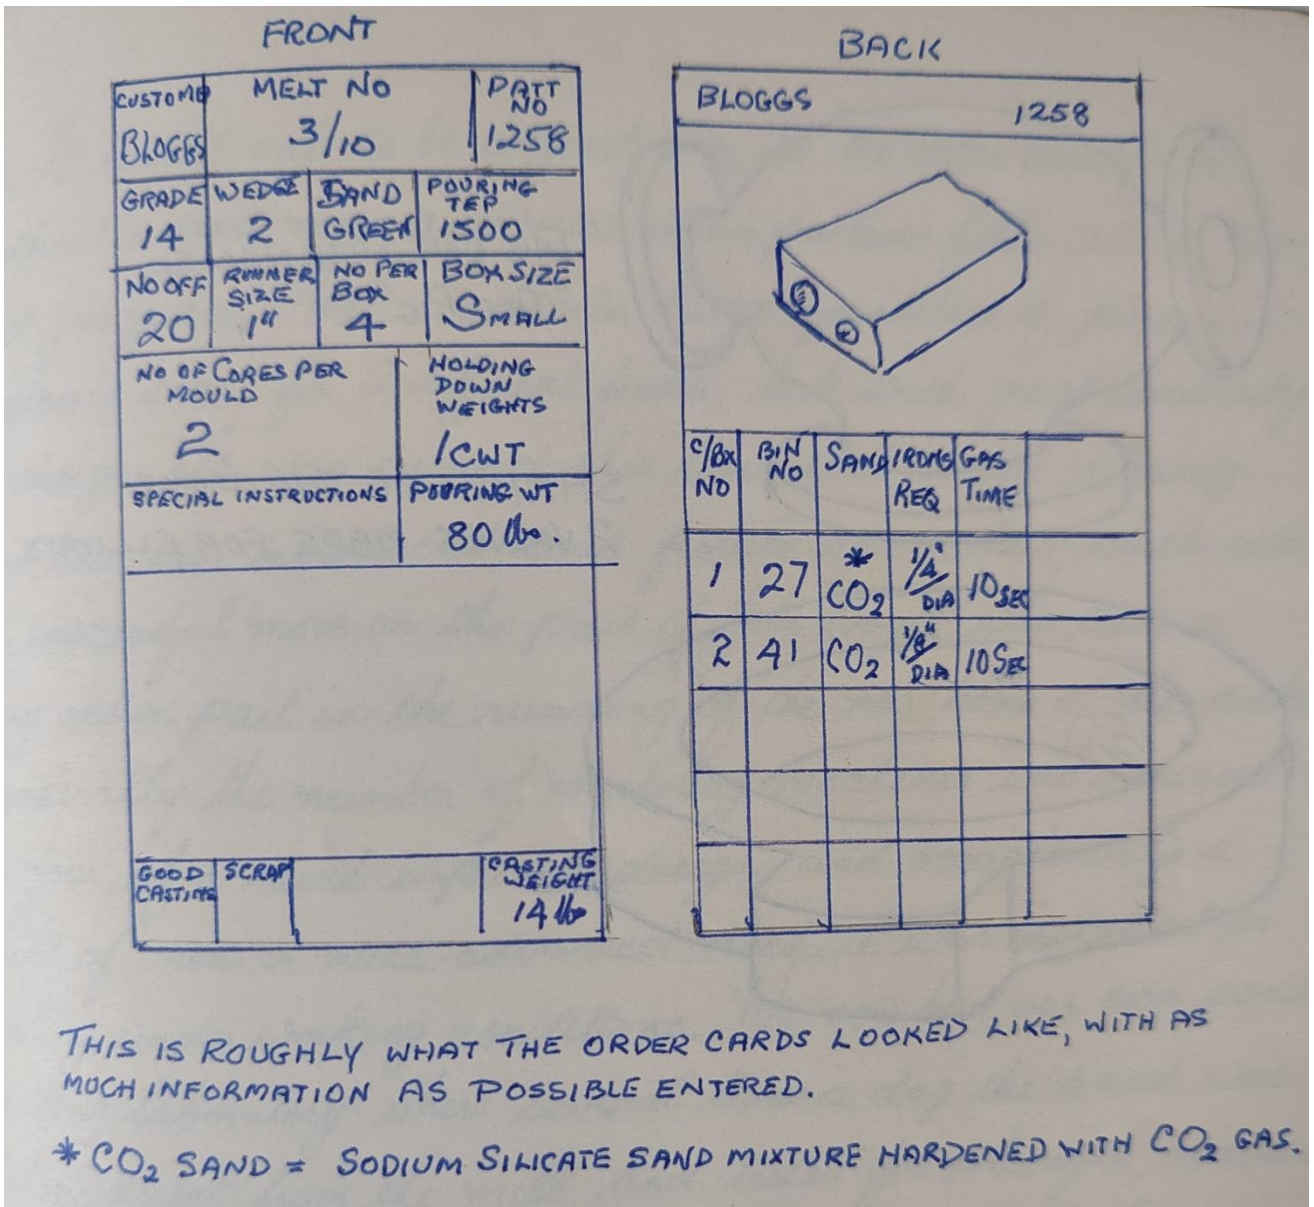 FRONT
CUSTOME
BLOGGS
MELT NO
3/10
PATT
NO
1258
GRADE
14
WEDGE
2
SAND
GREEN
POURING
TEP
1500
NO OFF
20
RUNNER
SIZE
1"
NO PER
BOX
4
BOX SIZE
SMALL
NO OF CORES PER
MOULD
2
HOLDING
DOWN
WEIGHTS
1 CWT
SPECIAL INSTRUCTIONS
POURING WT
80 lbs.
GOOD
CASTING
SCRAP
CASTING
WEIGHT
14 lbs
BACK
BLOGGS 1258
C/BX
NO
BIN
NO
SAND
IRONS
REQ
GAS
TIME
1 27 * CO2 1/4" DIA 10 SEC
2 41 CO2 1/8" DIA 10 SEC
THIS IS ROUGHLY WHAT THE ORDER CARDS LOOKED LIKE, WITH AS
MUCH INFORMATION AS POSSIBLE ENTERED.
* CO2 SAND = SODIUM SILICATE SAND MIXTURE HARDENED WITH CO2 GAS.